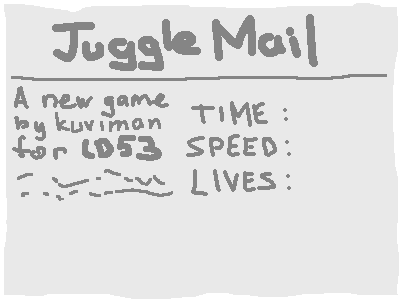 Juggle Mail
A new game
by kuviman
for LD53
TIME :
SPEED:
LIVES: